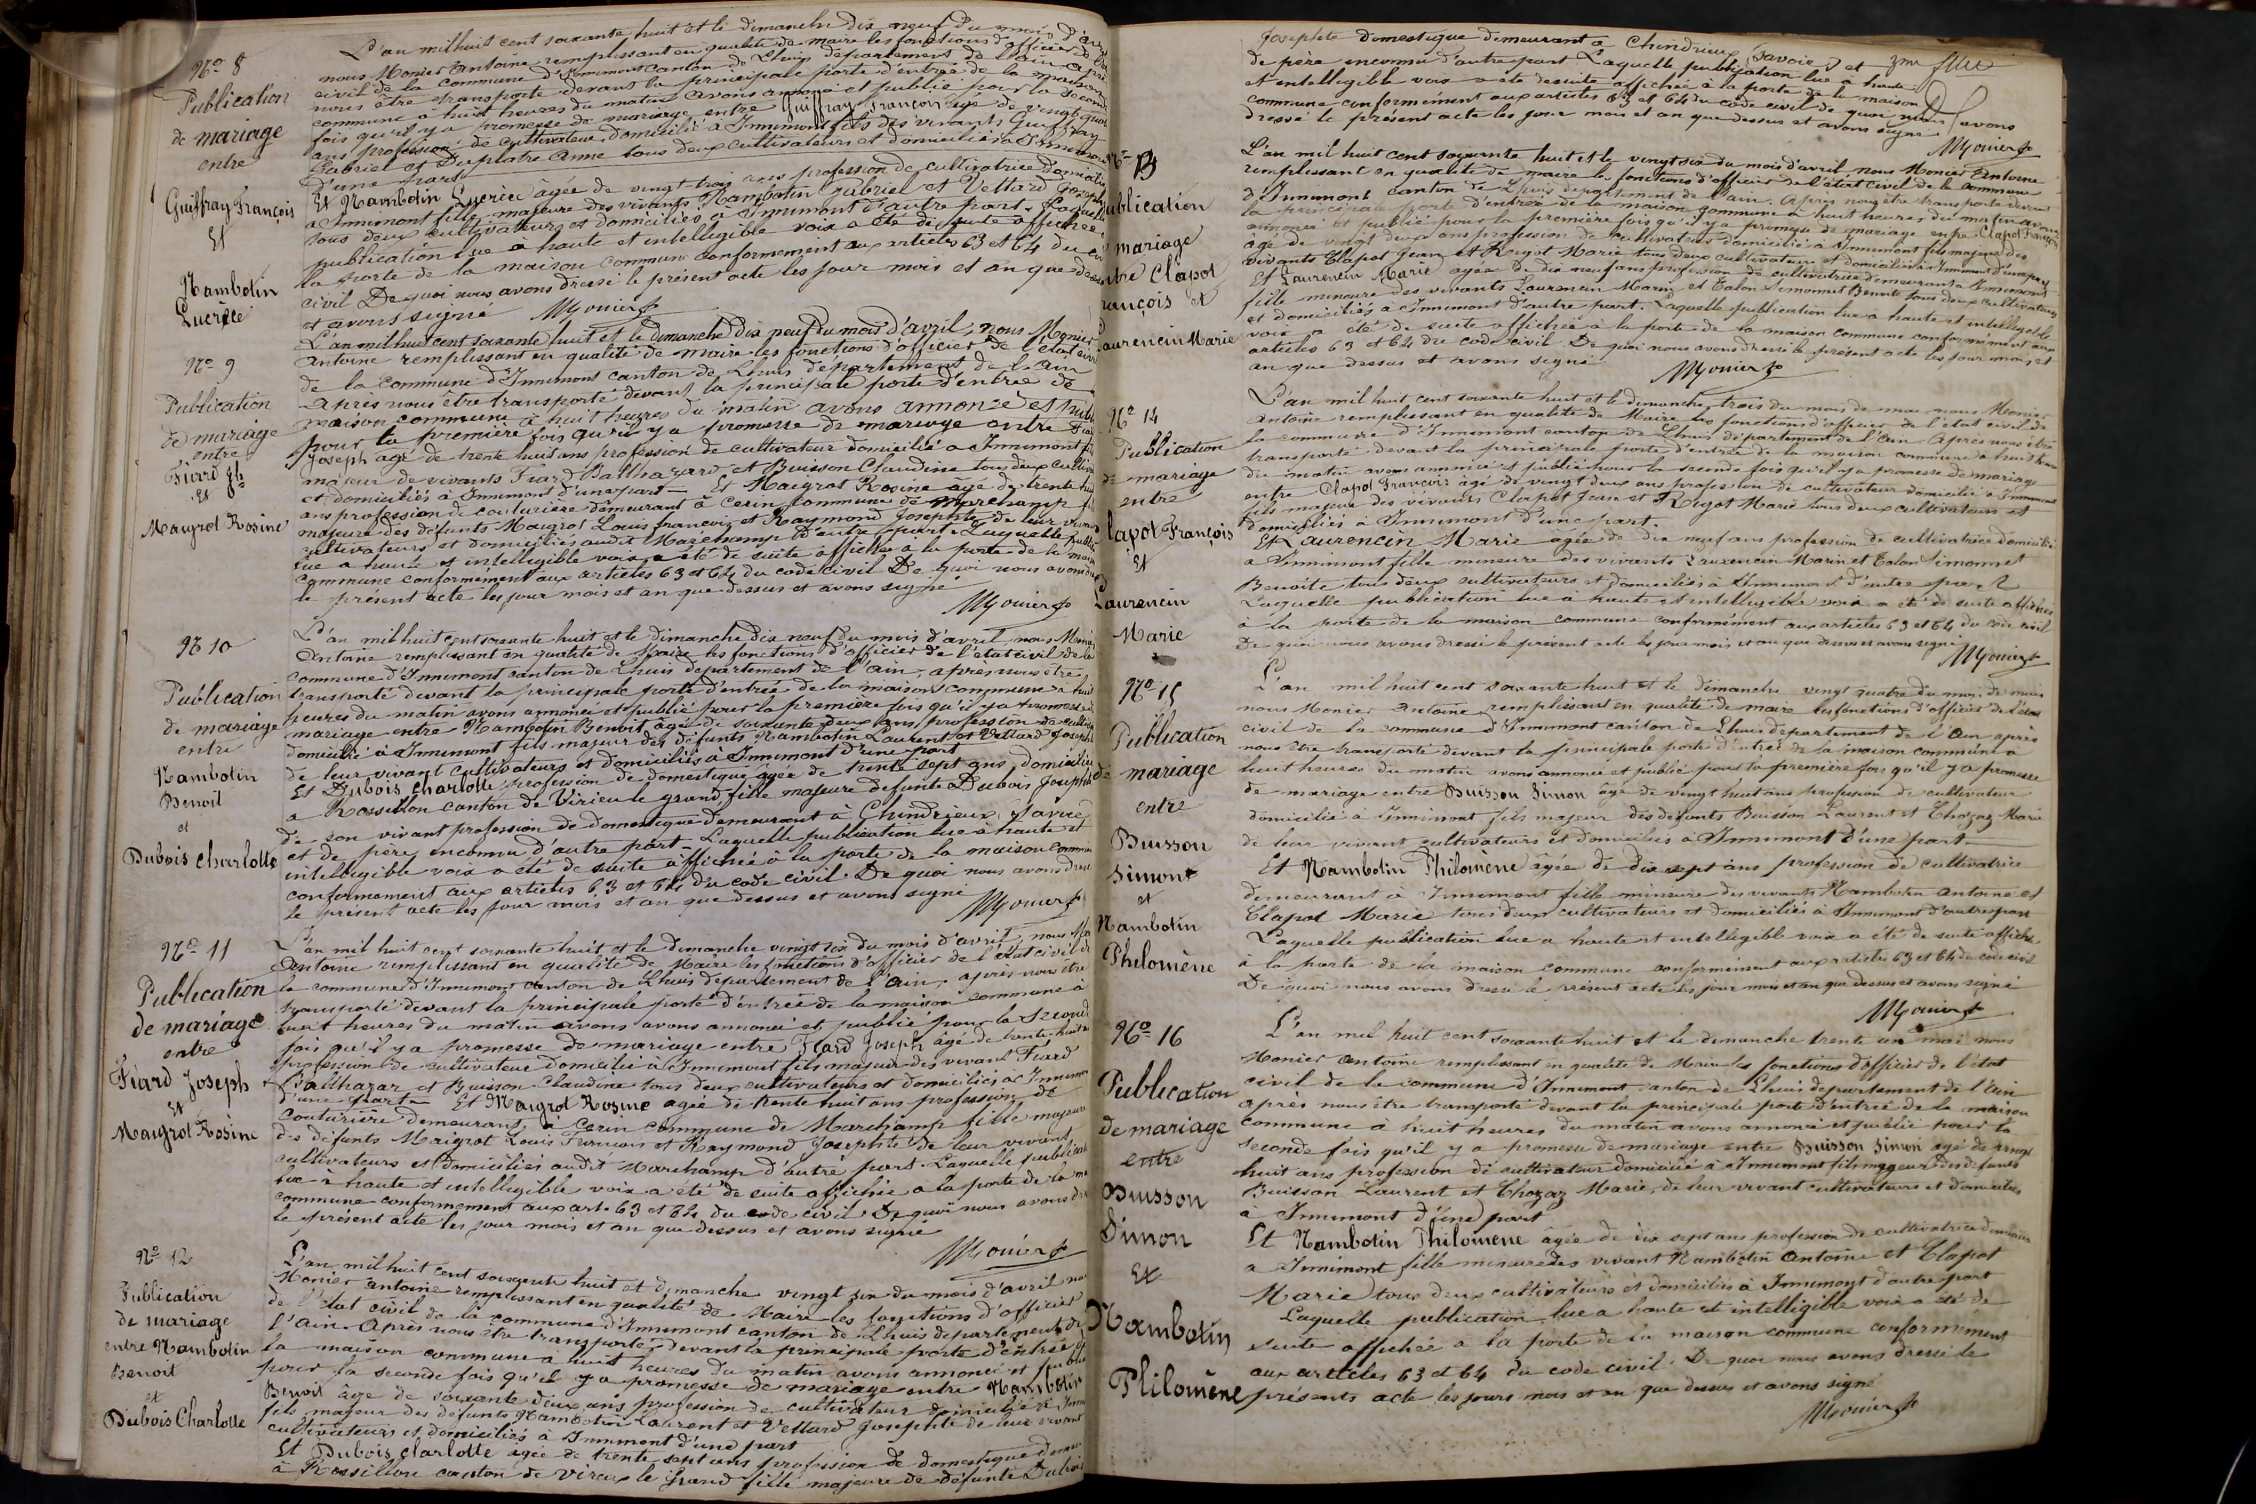 Nº 8
Publication
de mariage
entre
Guiffray François
Et
Nambotin
Lucrèce
L'an mil huit cent soixante huit et le dimanche dix neuf du mois d'avril
nous Monier Antoine remplissant en qualité de maire les fonctions d'officier de l'état
civil de la commune d'Innimont canton de Lhuis département de l'ain après
nous être transporté devant la principale porte d'entrée de la maison
commune à huit heures du matin avons annoncé et publié pour la seconde
fois qu'il y a promesse de mariage entre Guiffray François âgé de vingt quatre
ans profession de cultivateur domicilié à Innimont fils des vivants Guiffray
Gabriel et Duplatre Anne tous deux cultivateurs et domiciliés à Innimont
d'une part
Et Nambotin Lucrèce âgée de vingt trois ans profession de cultivatrice domiciliée
à Innimont fille majeure des vivants Nambotin Gabriel et Vettard Josephte
tous deux cultivateurs et domiciliés à Innimont d'autre part. Laquelle
publication lue à haute et intelligible voix a été de suite affichée à
la porte de la maison commune conformément aux articles 63 et 64 du code
civil De quoi nous avons dressé le présent acte les jour mois et an que dessus
et avons signé Monier
Nº 9
Publication
de mariage
entre
Fiard Jh
Et
Maigrot Rosine
L'an mil huit cent soixante huit et le dimanche dix neuf du mois d'avril, nous Monier
Antoine remplissant en qualité de maire les fonctions d'officier de l'état civil
de la commune d'Innimont canton de Lhuis département de l'ain
après nous être transporté devant la principale porte d'entrée de
maison commune à huit heures du matin avons annoncé et publié
pour la première fois qu'il y a promesse de mariage entre Fiard
Joseph âgé de trente huit ans profession de cultivateur domicilié à Innimont fils
majeur de vivants Fiard Balthazard et Buisson Claudine tous deux cultivateurs
et domiciliés à Innimont d'une part Et Maigrot Rosine âgée de trente huit
ans profession de couturière demeurant à Cerin commune de Marchamp fille
majeure des défunts Maigrot Louis francois et Raymond Josephte de leur vivant
cultivateurs et domiciliés audit Marchamp d'autre part. Laquelle publication
lue à haute et intelligible voix a été de suite affichée à la porte de la maison
commune conformément aux articles 63 et 64 du code civil De quoi nous avons dressé
le présent acte les jour mois et an que dessus et avons signé
Monier
Nº 10
Publication
de mariage
entre
Nambotin
Benoit
et
Dubois Charlotte
L'an mil huit cent soixante huit et le dimanche dix neuf du mois d'avril nous Monier
Antoine remplissant en qualité de Maire les fonctions d'officier de l'état civil de la
commune d'Innimont canton de Lhuis département de l'ain, après nous être
transporté devant la principale porte d'entrée de la maison commune à huit
heures du matin avons annoncé et publié pour la première fois qu'il y a promesse de
mariage entre Nambotin Benoit âgé de soixante deux ans profession de cultivateur
domicilié à Innimont fils majeur des défunts Nambotin Laurent et Vettard Josephte
de leur vivant cultivateurs et domiciliés à Innimont d'une part
Et Dubois Charlotte profession de domestique âgée de trente sept ans domiciliée
à Rossillon canton de Virieu le grand fille majeure defunte Dubois Josephte
de son vivant profession de domestique demeurant à Chindrieux (Savoie)
et de père inconnu d'autre part - Laquelle publication lue à haute et
intelligible voix a été de suite affichée à la porte de la maison commune
conformément aux articles 63 et 64 du code civil. De quoi nous avons dressé
le présent acte les jour mois et an que dessus et avons signé
Monier
Nº 11
Publication
de mariage
entre
Fiard Joseph
Et
Maigrot Rosine
L'an mil huit cent soixante huit et le dimanche vingt six du mois d'avril, nous Monier
Antoine remplissant en qualité de Maire les fonctions d'officier de l'état civil de
la commune d'Innimont canton de Lhuis département de l'ain, après nous être
transporté devant la principale porte d'entrée de la maison commune à
huit heures du matin avons avons annoncé et publié pour la seconde
fois qu'il y a promesse de mariage entre Fiard Joseph âgé de trente huit ans
profession de cultivateur domicilié à Innimont fils majeur des vivant Fiard
Balthazar et Buisson Claudine tous deux cultivateurs et domiciliés à Innimont
d'une part Et Maigrot Rosine agée de trente huit ans profession de
couturière demeurant à Cerin commune de Marchamp fille majeure
des défunts Maigrot Louis Francois et Raymond Josephte de leur vivant
cultivateurs et domiciliés audit Marchamp d'autre part Laquelle publication
lue à haute et intelligible voix a été de suite affichée à la porte de la maison
commune conformément aux art. 63 et 64 du code civil. De quoi nous avons dressé
le présent acte les jour mois et an que dessus et avons signé
Monier
Nº 12
Publication
de mariage
entre Nambotin
Benoit
et
Dubois Charlotte
L'an mil huit cent soixante huit et dimanche vingt six du mois d'avril nous
Monier Antoine remplissant en qualité de Maire les fonctions d'officier
de l'état civil de la commune d'Innimont canton de Lhuis département de
l'ain. Après nous être transporté devant la principale porte d'entrée de
la maison commune à huit heures du matin avons annoncé et publié
pour la seconde fois qu'il y a promesse de mariage entre Nambotin
Benoit âgé de soixante deux ans profession de cultivateur domicilié à Innimont
fils majeur des défunts Nambotin Laurent et Vettard Josephte de leur vivant
cultivateurs et domiciliés à Innimont d'une part
Et Dubois Charlotte âgée de trente sept ans profession de domestique demeurant
à Rossillon canton de Virieux le Grand fille majeure de défunte Dubois
Josephte domestique demeurant à Chindrieux (Savoie) et
de père inconnu d'autre part Laquelle publication lue à haute
et intelligible voix a été de suite affichée à la porte de la maison
commune conformément aux articles 63 et 64 du code civil de quoi nous avons
dressé le présent acte les jour mois et an que dessus et avons signé
Monier
Nº 13
Publication
mariage
entre Clapot
François et
Laurencin Marie
L'an mil huit cent soixante huit et le vingt six du mois d'avril nous Monier Antoine
remplissant en qualité de maire les fonctions d'officier de l'état civil de la commune
d'Innimont canton de Lhuis département de l'ain. Après nous être transporté devant
la principale porte d'entrée de la maison commune à huit heures du matin avons
annoncé et publié pour la première fois qu'il y a promesse de mariage entre Clapot François
âgé de vingt deux ans profession de cultivateur domicilié à Innimont fils majeur des
vivants Clapot Jean et Rigot Marie tous deux cultivateurs et domiciliés à Innimont d'une part
Et Laurencin Marie agée de dix neuf ans profession de cultivatrice demeurant à Innimont
fille mineure des vivants Laurencin Marin et Talon Simonnet Benoite tous deux cultivateurs
et domiciliés à Innimont d'autre part. Laquelle publication lue à haute et intelligible
voix a été de suite affichée à la porte de la maison commune conformément aux
articles 63 et 64 du code civil De quoi nous avons dressé le présent acte les jour mois et
an que dessus et avons signé
Monier
Nº 14
Publication
de mariage
entre
Clapot François
Et
Laurencin
Marie
L'an mil huit cent soixante huit et le dimanche trois du mois de mai nous Monier
Antoine remplissant en qualité de Maire les fonctions d'officier de l'état civil de
la commune d'Innimont canton de Lhuis département de l'ain Après nous être
transporté devant la principale porte d'entrée de la maison commune à huit heures
du matin avons annoncé et publié pour la seconde fois qu'il y a promesse de mariage
entre Clapot François âgé de vingt deux ans profession de cultivateur domicilié à Innimont
fils majeur des vivants Clapot Jean et Rigot Marie tous deux cultivateurs et
domiciliés à Innimont d'une part.
Et Laurencin Marie agée de dix neuf ans profession de cultivatrice domiciliée
à Innimont fille mineure des vivants Laurencin Marin et Talon Simonnet
Benoite tous deux cultivateurs et domiciliés à Innimont d'autre part
Laquelle publication lue à haute et intelligible voix a été de suite affichée
à la porte de la maison commune conformément aux articles 63 et 64 du code civil
De quoi nous avons dressé le présent acte les jour mois et an que dessus et avons signé
Monier
Nº 15
Publication
de mariage
entre
Buisson
Simon
et
Nambotin
Philomène
L'an mil huit cent soixante huit et le dimanche vingt quatre du mois de mai
nous Monier Antoine remplissant en qualité de maire les fonctions d'officier de l'état
civil de la commune d'Innimont canton de Lhuis département de l'ain après
nous être transporté devant la principale porte d'entrée de la maison commune à
huit heures du matin avons annoncé et publié pour la première fois qu'il y a promesse
de mariage entre Buisson Simon âgé de vingt huit ans profession de cultivateur
domicilié à Innimont fils majeur des défunts Buisson Laurent et Chozaz Marie
de leur vivant cultivateurs et domiciliés à Innimont d'une part
Et Nambotin Philomène âgée de dix sept ans profession de cultivatrice
demeurant à Innimont fille mineure des vivants Nambotin Antoine et
Clapot Marie tous deux cultivateurs et domiciliés à Innimont d'autre part
Laquelle publication lue à haute et intelligible voix a été de suite affichée
à la porte de la maison commune conformément aux articles 63 et 64 du code civil
De quoi nous avons dressé le présent acte les jour mois et an que dessus et avons signé
Monier
Nº 16
Publication
de mariage
entre
Buisson
Simon
Et
Nambotin
Philomène
L'an mil huit cent soixante huit et le dimanche trente un mai nous
Monier Antoine remplissant en qualité de Maire les fonctions d'officier de l'état
civil de la commune d'Innimont canton de Lhuis département de l'ain
après nous être transporté devant la principale porte d'entrée de la maison
commune à huit heures du matin avons annoncé et publié pour la
seconde fois qu'il y a promesse de mariage entre Buisson Simon âgé de vingt
huit ans profession de cultivateur domicilié à Innimont fils majeur des défunts
Buisson Laurent et Chozaz Marie, de leur vivant cultivateurs et domiciliés
à Innimont d'une part
Et Nambotin Philomène âgée de dix sept ans profession de cultivatrice domiciliée
à Innimont fille mineure des vivant Nambotin Antoine et Clapot
Marie tous deux cultivateurs et domiciliés à Innimont d'autre part
Laquelle publication lue à haute et intelligible voix a été de
suite affichée à la porte de la maison commune conformément
aux articles 63 et 64 du code civil. De quoi nous avons dressé le
présents acte les jours mois et an que dessus et avons signé
Monier